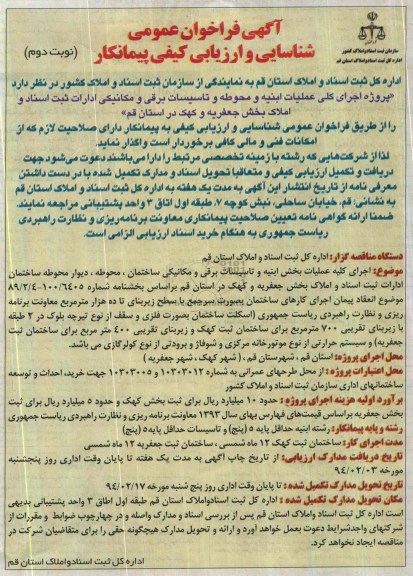 آگهی فراخوان عمومی
شناسایی و ارزیابی کیفی پیمانکار
(نوبت دوم)
سازمان ثبت اسناد و املاک کشور
اداره کل ثبت اسناد و املاک استان قم
اداره کل ثبت اسناد و املاک استان قم به نمایندگی از سازمان ثبت اسناد و املاک کشور در نظر دارد
«پروژه اجرای کلی عملیات ابنیه و محوطه و تاسیسات برقی و مکانیکی ادارات ثبت اسناد و
املاک بخش جعفریه و کهک در استان قم»
را از طریق فراخوان عمومی شناسایی و ارزیابی کیفی به پیمانکار دارای صلاحیت لازم که از
امکانات فنی و مالی کافی برخوردار است واگذار نماید.
لذا از شرکت‌هایی که رشته یا زمینه تخصصی مرتبط را دارا می‌باشند دعوت می‌شود جهت
دریافت و تکمیل ارزیابی کیفی و متعاقبا تحویل اسناد و مدارک تکمیل شده با در دست داشتن
معرفی نامه از تاریخ انتشار این آگهی به مدت یک هفته به اداره کل ثبت اسناد و املاک استان قم
به نشانی: قم، خیابان ساحلی، نبش کوچه ۷، طبقه اول اتاق ۳ واحد پشتیبانی مراجعه نمایند.
ضمنا ارائه گواهی نامه تعیین صلاحیت پیمانکاری معاونت برنامه‌ریزی و نظارت راهبردی
ریاست جمهوری به هنگام خرید اسناد ارزیابی الزامی است.
دستگاه مناقصه گزار: اداره کل ثبت اسناد و املاک استان قم
موضوع: اجرای کلیه عملیات بخش ابنیه و تاسیسات برقی و مکانیکی ساختمان ، محوطه ، دیوار محوطه ساختمان
ادارات ثبت اسناد و املاک بخش جعفریه و کهک در استان قم براساس بخشنامه شماره ۱۰۰/۶۴۰۵-۸۹/۲/۴
موضوع انعقاد پیمان اجرای کارهای ساختمان بصورت سرجمع با سطح زیربنای تا ده هزار مترمربع معاونت برنامه
ریزی و نظارت راهبردی ریاست جمهوری (اسکلت ساختمان بصورت فلزی و سقف از نوع تیرچه بلوک در ۲ طبقه
با زیربنای تقریبی ۷۰۰ مترمربع برای ساختمان ثبت کهک و زیربنای تقریبی ۴۰۰ متر مربع برای ساختمان ثبت
جعفریه) و سیستم حرارتی از نوع موتورخانه مرکزی و شوفاژ و برودتی از نوع کولرگازی می باشد.
محل اجرای پروژه: استان قم ، شهرستان قم ، ( شهر کهک ، شهر جعفریه )
محل اعتبارات پروژه : از محل طرحهای عمرانی به شماره ۱۰۳۰۳۰۱۲ و ۱۰۳۰۳۰۰۵ جهت خرید، احداث و توسعه
ساختمانهای اداری سازمان ثبت اسناد و املاک کشور
برآورد اولیه هزینه اجرای پروژه : حدود ۱۰ میلیارد ریال برای ثبت بخش کهک و حدود ۵ میلیارد ریال برای ثبت
بخش جعفریه براساس قیمت‌های فهارس بهای سال ۱۳۹۳ معاونت برنامه ریزی و نظارت راهبردی ریاست جمهوری
رشته و پایه پیمانکار: رشته ابنیه حداقل پایه ۵ (پنج) و تاسیسات حداقل پایه ۵ (پنج)
مدت اجرای کار: ساختمان ثبت کهک ۱۲ ماه شمسی ، ساختمان ثبت جعفریه ۱۲ ماه شمسی
تاریخ دریافت مدارک ارزیابی: از تاریخ چاپ آگهی به مدت یک هفته تا پایان وقت اداری روز پنجشنبه
مورخه ۹۴/۰۲/۰۳
تاریخ تحویل مدارک تکمیل شده : تا پایان وقت اداری روز پنج شنبه مورخه ۹۴/۰۲/۱۷
مکان تحویل مدارک تکمیل شده : اداره کل ثبت اسناد و املاک استان قم طبقه اول اتاق ۳ واحد پشتیبانی بدیهی
است اداره کل ثبت اسناد و املاک استان قم پس از بررسی اسناد و مدارک واصله و در چهارچوب ضوابط و مقررات از
شرکتهای واجد شرایط دعوت بعمل خواهد آورد و ارائه و تحویل مدارک هیچگونه حقی را برای متقاضیان شرکت در
مناقصه ایجاد نخواهد کرد.
اداره کل ثبت اسناد و املاک استان قم